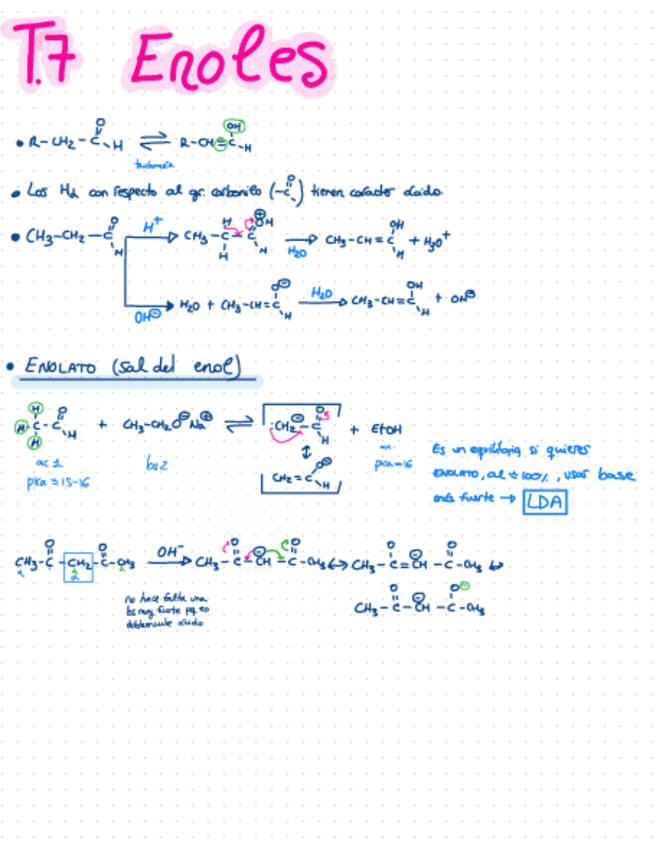 T.7 Enoles
• R-CH2-C(=O)-H ⇌ R-CH=C(OH)-H
tautomería
• Los Hα con respecto al gr. carbonilo (-C=O) tienen carácter ácido.
• CH3-CH2-C(=O)H H+ → CH3-CH2-C(=OH⊕)H H2O → CH3-CH=C(OH)H + H3O+
OH⊖ → H2O + CH3-CH=C(O⊖)H H2O → CH3-CH=C(OH)H + OH⊖
• ENOLATO (sal del enol)
H3C-C(=O)H + CH3-CH2O⊖Na⊕ ⇌ [:CH2⊖-C(=O)H ↕ CH2=C(O⊖)H] + EtOH
ac 1
pka = 15-16
bs 2
ac.
pka=16
Es un equilibrio si quieres
ENOLATO, al ≃ 100%, usar base
más fuerte → LDA
CH3-C(=O)-CH2-C(=O)-CH3 OH⁻ → CH3-C(=O)-CH⊖-C(=O)-CH3 ↔ CH3-C(=O)=CH⊖-C(=O)-CH3 ↔
α 2 α
CH3-C(=O)-CH⊖-C(O⊖)-CH3
no hace falta una
bs muy fuerte pq es
doblemente ácido